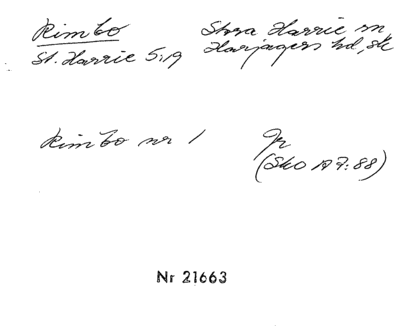 Rimbo Stora Harrie sn
St. Harrie 5:19 Harjagers hd, sk
Rimbo nr 1 Gr
(Sko A 7:88)
Nr 21663